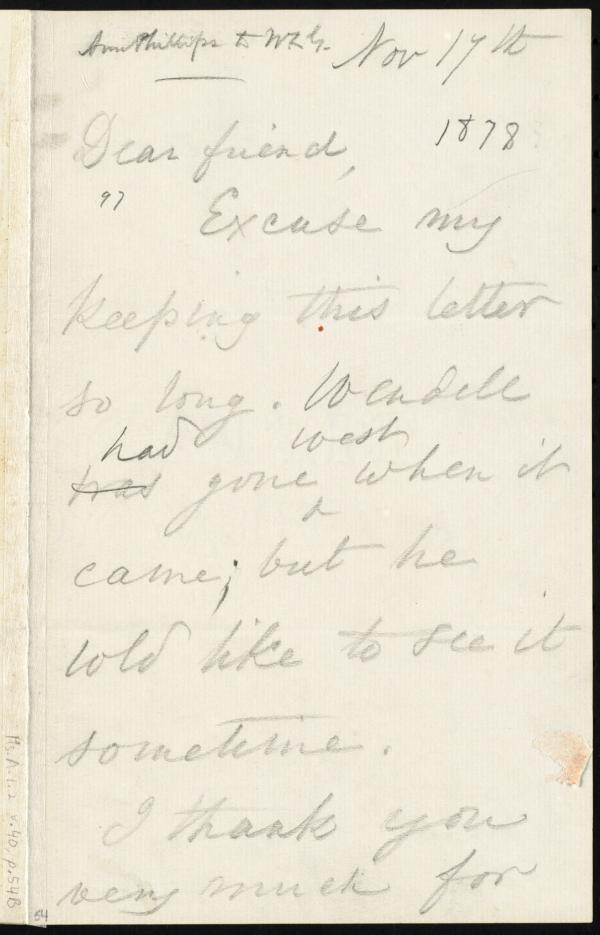 Ann Phillips to W.L.G. Nov 17th
1878
Dear friend,
97
Excuse my
keeping this letter
so long. Wendell
had west
was gone ^ when it
came; but he
wld like to see it
sometime.
I thank you
very much for
Ms.A.1.2 v.40, p.54B
54